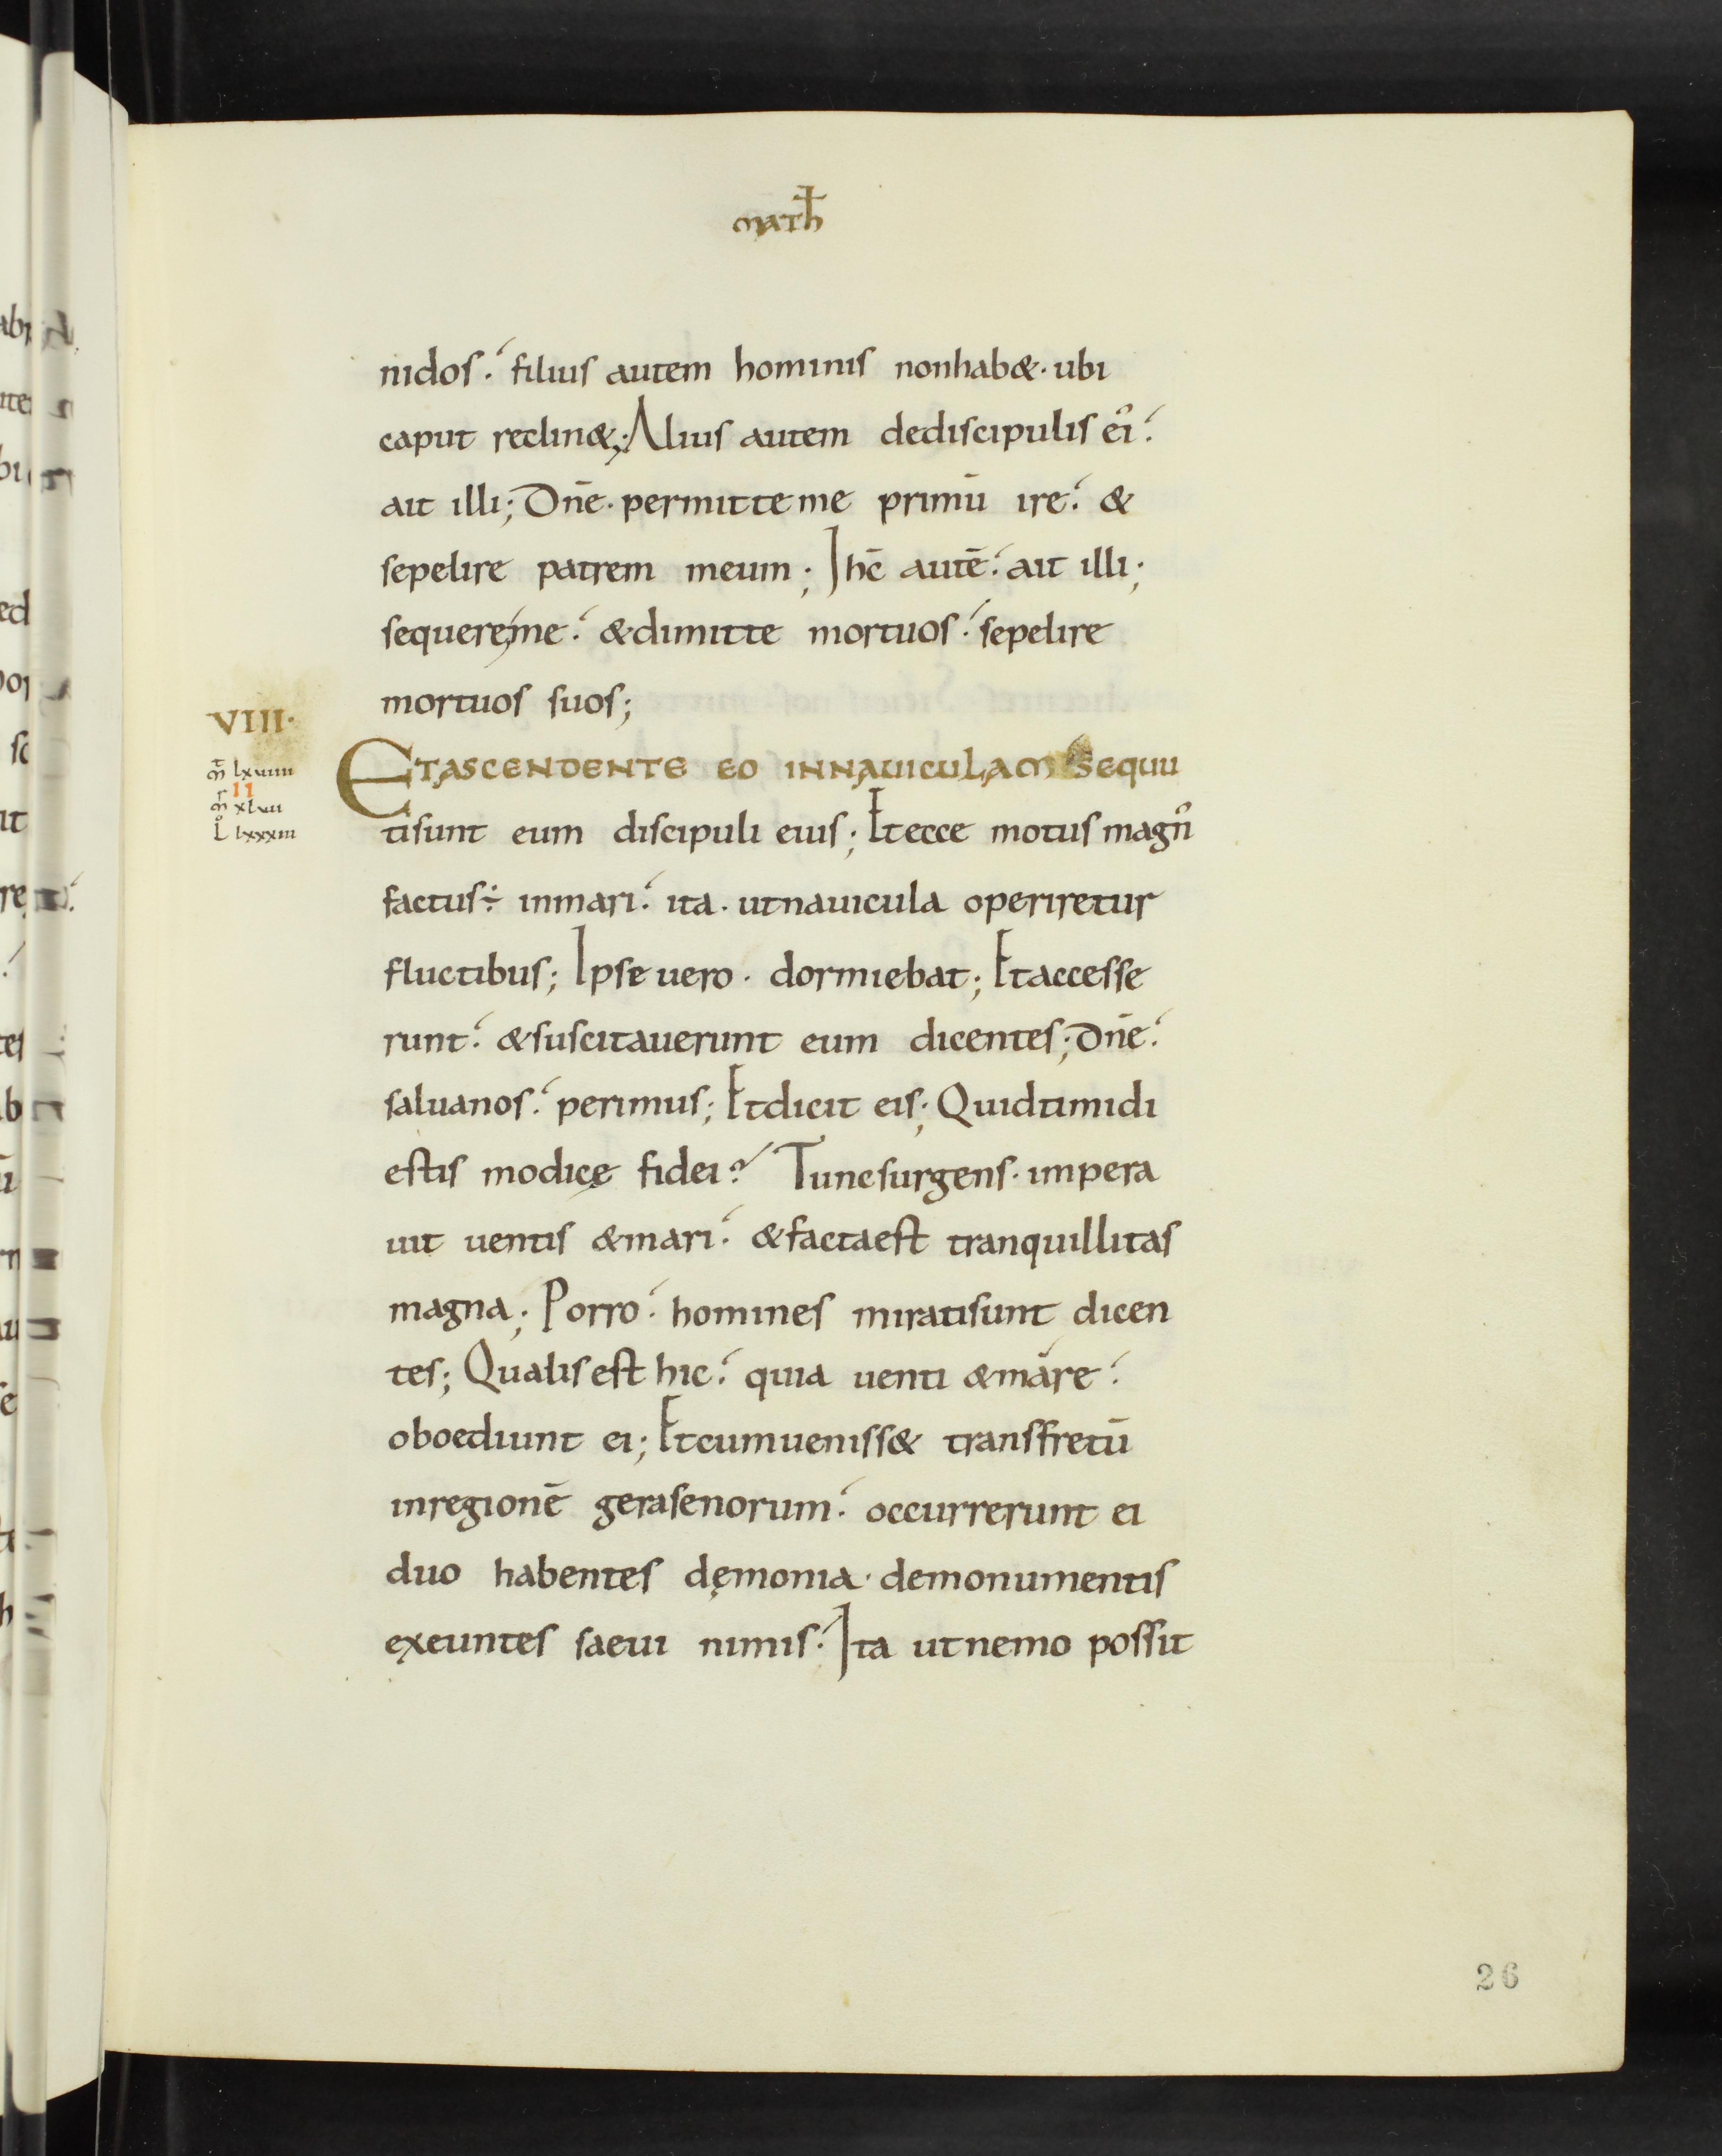 math̄
nidos. filius autem hominis nonhab&. ubi
caput reclin&; Alius autem dediscipulis ei᾿.
ait illi; Dn̄e. permitteme primū ire. &
sepelire patrem meum; Ihc̄ autē. ait illi;
sequereme. &dimitte mortuos. sepelire
mortuos suos;
VIII.
ETASCENDENTE EO INNAUICULAM SEQUU
m̄ lxviiii
r II
m xlvii
L lxxxiii
tisunt eum discipuli eius; Etecce motus magn᾿
factus÷ inmari. ita. utnauicula operiretur
fluctibus; Ipse uero. dormiebat; Etaccesse
runt. &suscitauerunt eum dicentes; Dn̄e.
saluanos. perimus; Etdicit eis; Quidtimidi
estis modicę fidei? Tuncsurgens. impera
uit uentis &mari. &factaest tranquillitas
magna; Porro. homines miratisunt dicen
tes; Qualisest hic. quia uenti &mare.
oboediunt ei; Etcumueniss& transfretū
inregionē gerasenorum. occurrerunt ei
duo habentes dęmonia. demonumentis
exeuntes saeui nimis. Ita utnemo possit
26